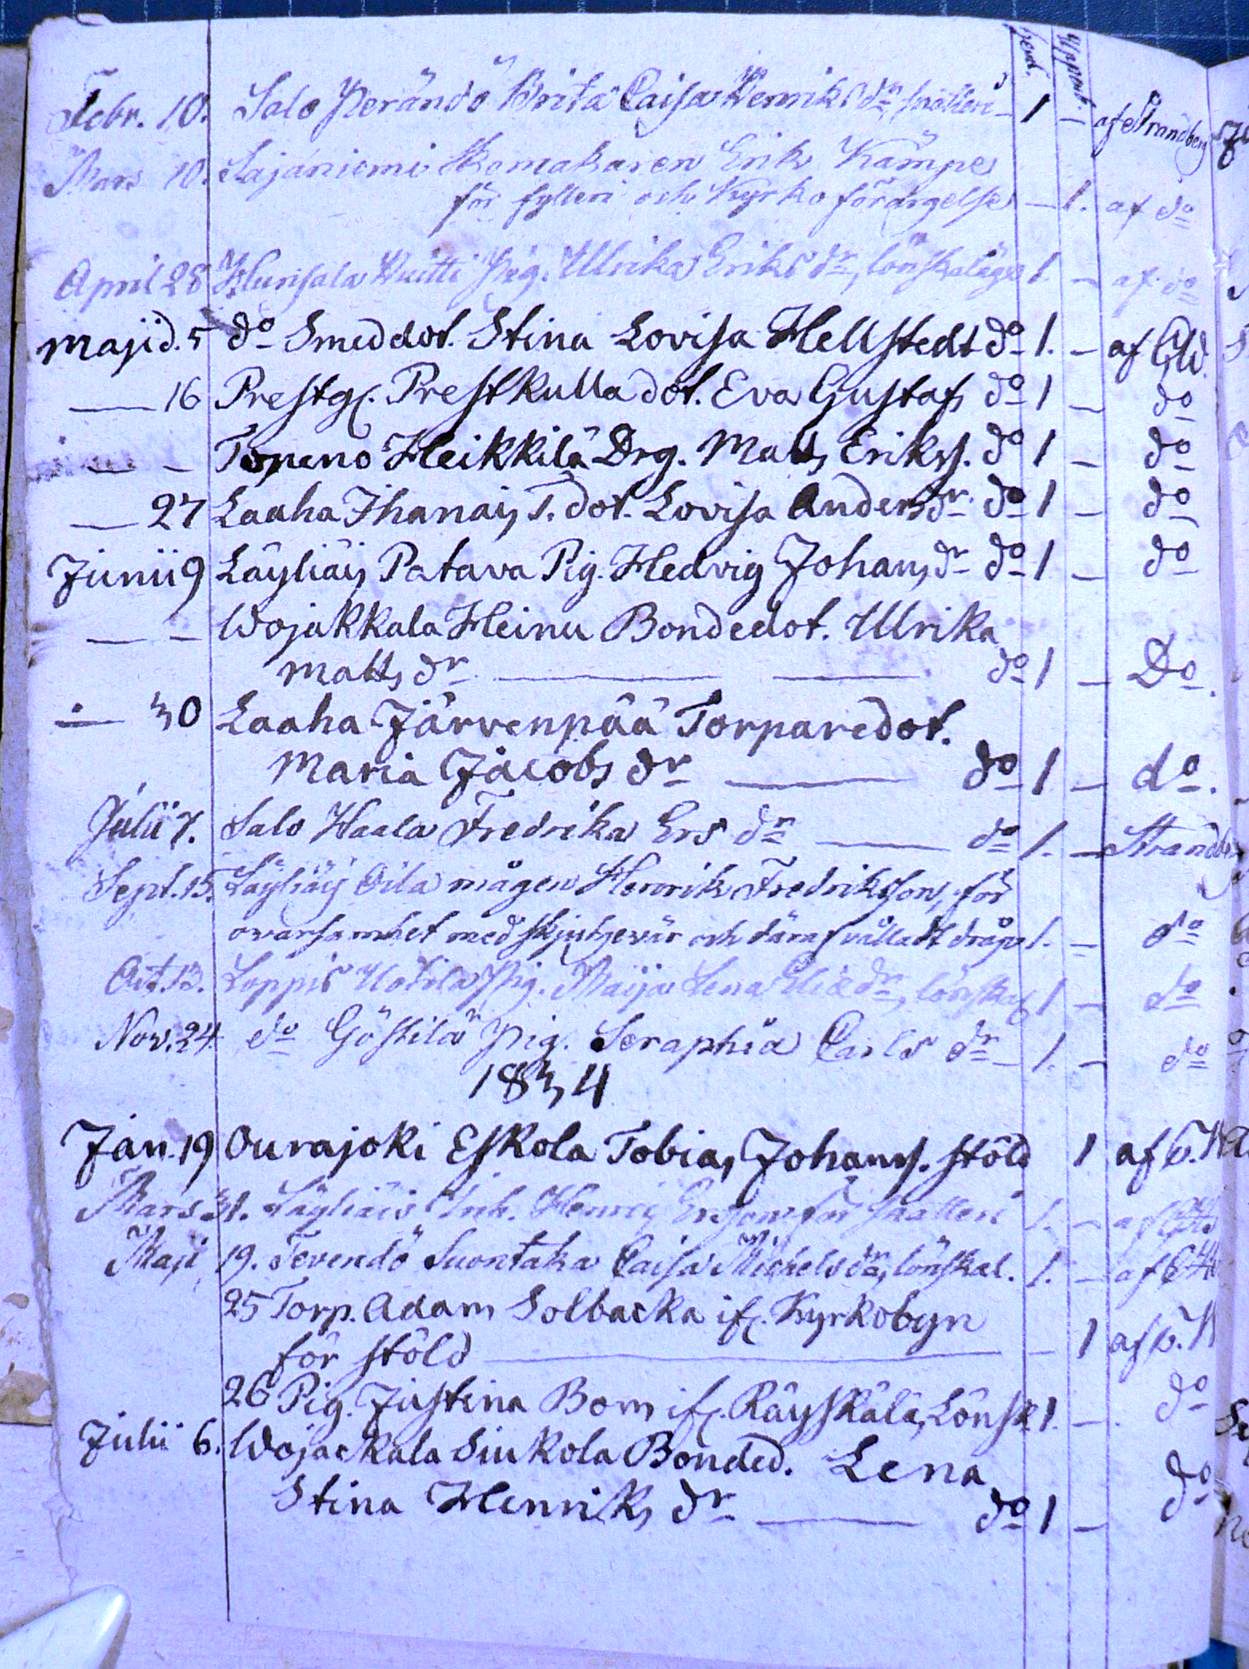 hemt. uppenb.
Febr. 10. Salo Perändö Brita Caisa Henriks dr. 1 – af Strandberg
Mars 10. Sajaniemi Skomakaren Erik Kämpe
för fylleri och Kyrko förargelse – 1. af do
April 28 Hunsala Kuitti Pig. Ulrika Eriks dr, lönskaläge 1. – af do
Maji d. 5 do Smeddot. Stina Lovisa Hellstedt do 1. – af
— 16 Prestg. Prestkulla dot. Eva Gustafs do 1 – do
— – Topeno Heikkilä Drg. Matts Erikss. do 1 – do
— 27 Laaha Ihanais T. dot. Lovisa Anders dr. do 1 – do
Junii 9 Läyliäis Patava Pig. Hedvig Johans dr do 1 – do
— – Wojakkala Heinu Bondedot. Ulrika
Matts dr — — do 1 – Do.
— 30 Laaha Järvenpää Torparedot.
Maria Jacobs dr — do 1 – do.
Julii 7. Salo Haala Fredrika Ers dr — do 1. – Strandbe
Sept. 15. Läyliäis Oila mågen Henrik Fredriksson, för
ovarsamhet med skjutgevär och däraf vålladt dråp 1. – do
Oct. 13. Loppis Uotila Pig. Maija Lena dr, lönskal 1 – do
Nov. 24 do Göstilä Pig. Seraphia Carls dr – 1. – do
1834
Jan. 19 Ourajoki Eskola Tobias Johanss. stöld 1 af
Mars 31. Läyliäis Inh. Henric Ersson för 1. – af
Maji 19. Tevendö Suontaka Caisa Michels dr, lönskal. 1. – af
25 Torp. Adam Solbacka if. Kyrkobyn
för stöld — – 1 af
26 Pig. Justina Bom if. Räyskälä, Lönsk 1. – do
Julii 6. Wojackala Siukola Bonded. Lena
Stina Henriks dr — do 1 – do